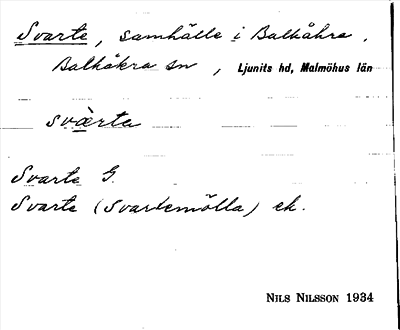 Svarte, samhälle i Balkåkra.
Balkåkra sn, Ljunits hd, Malmöhus län
svàrta
Svarte G.
Svarte (Svartemölla) ek.
NILS NILSSON 1934